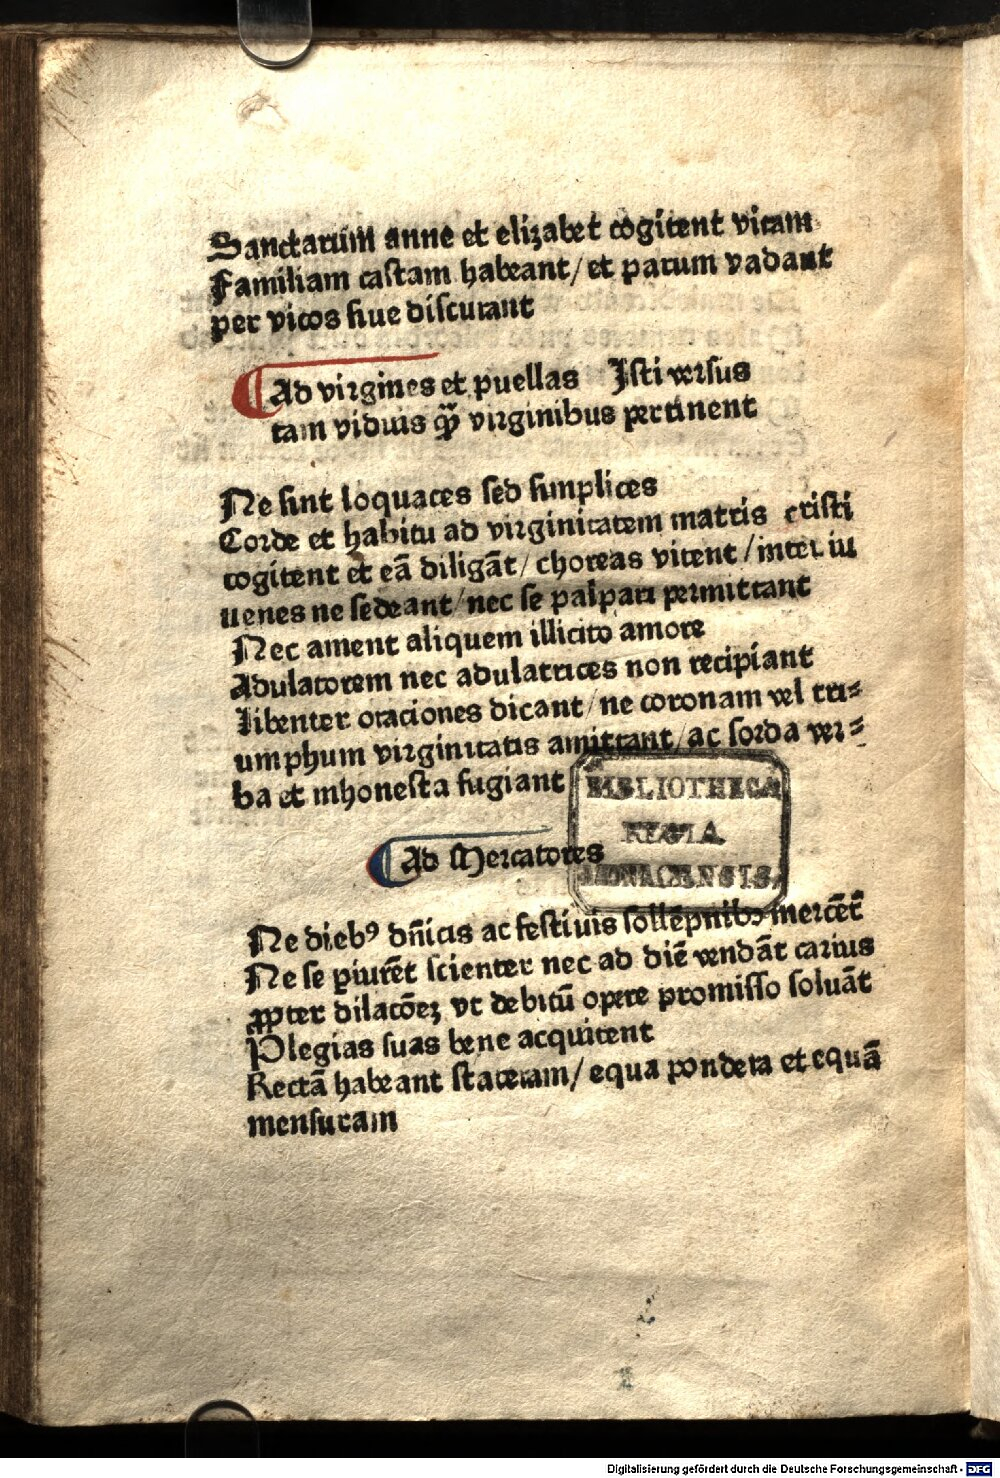 Sanctarum anne et elizabet cogitent vitam
Familiam castam habeant/ et parum vadant
per vicos siue discurant
Ad virgines et puellas Isti versus
tam viduis qꝫ virginibus pertinent
Ne sint loquaces sed simplices
Corde et habitu ad virginitatem matris cristi
cogitent et eā diligāt/ choreas vitent/ inter iu
uenes ne sedeant/ nec se palpari permittant
Nec ament aliquem illicito amore
Adulatorem nec adulatrices non recipiant
Libenter oraciones dicant/ ne coronam vel tri⸗
umphum virginitatis amittant/ ac sorda ver⸗
ba et inhonesta fugiant
BIBLIOTHECA
REGIA
MONACENSIS.
Ad Mercatores
Ne diebꝰ dn̄icis ac festiuis sollēpnibꝫ mercēt̄
Ne se ꝑiurēt scienter nec ad diē vendāt carius
ꝓpter dilacōeꝫ vt debitū opere promisso soluāt
Plegias suas bene acquitent
Rectā habeant stateram/ equa pondera et equā
mensuram
Digitalisierung gefördert durch die Deutsche Forschungsgemeinschaft - DFG